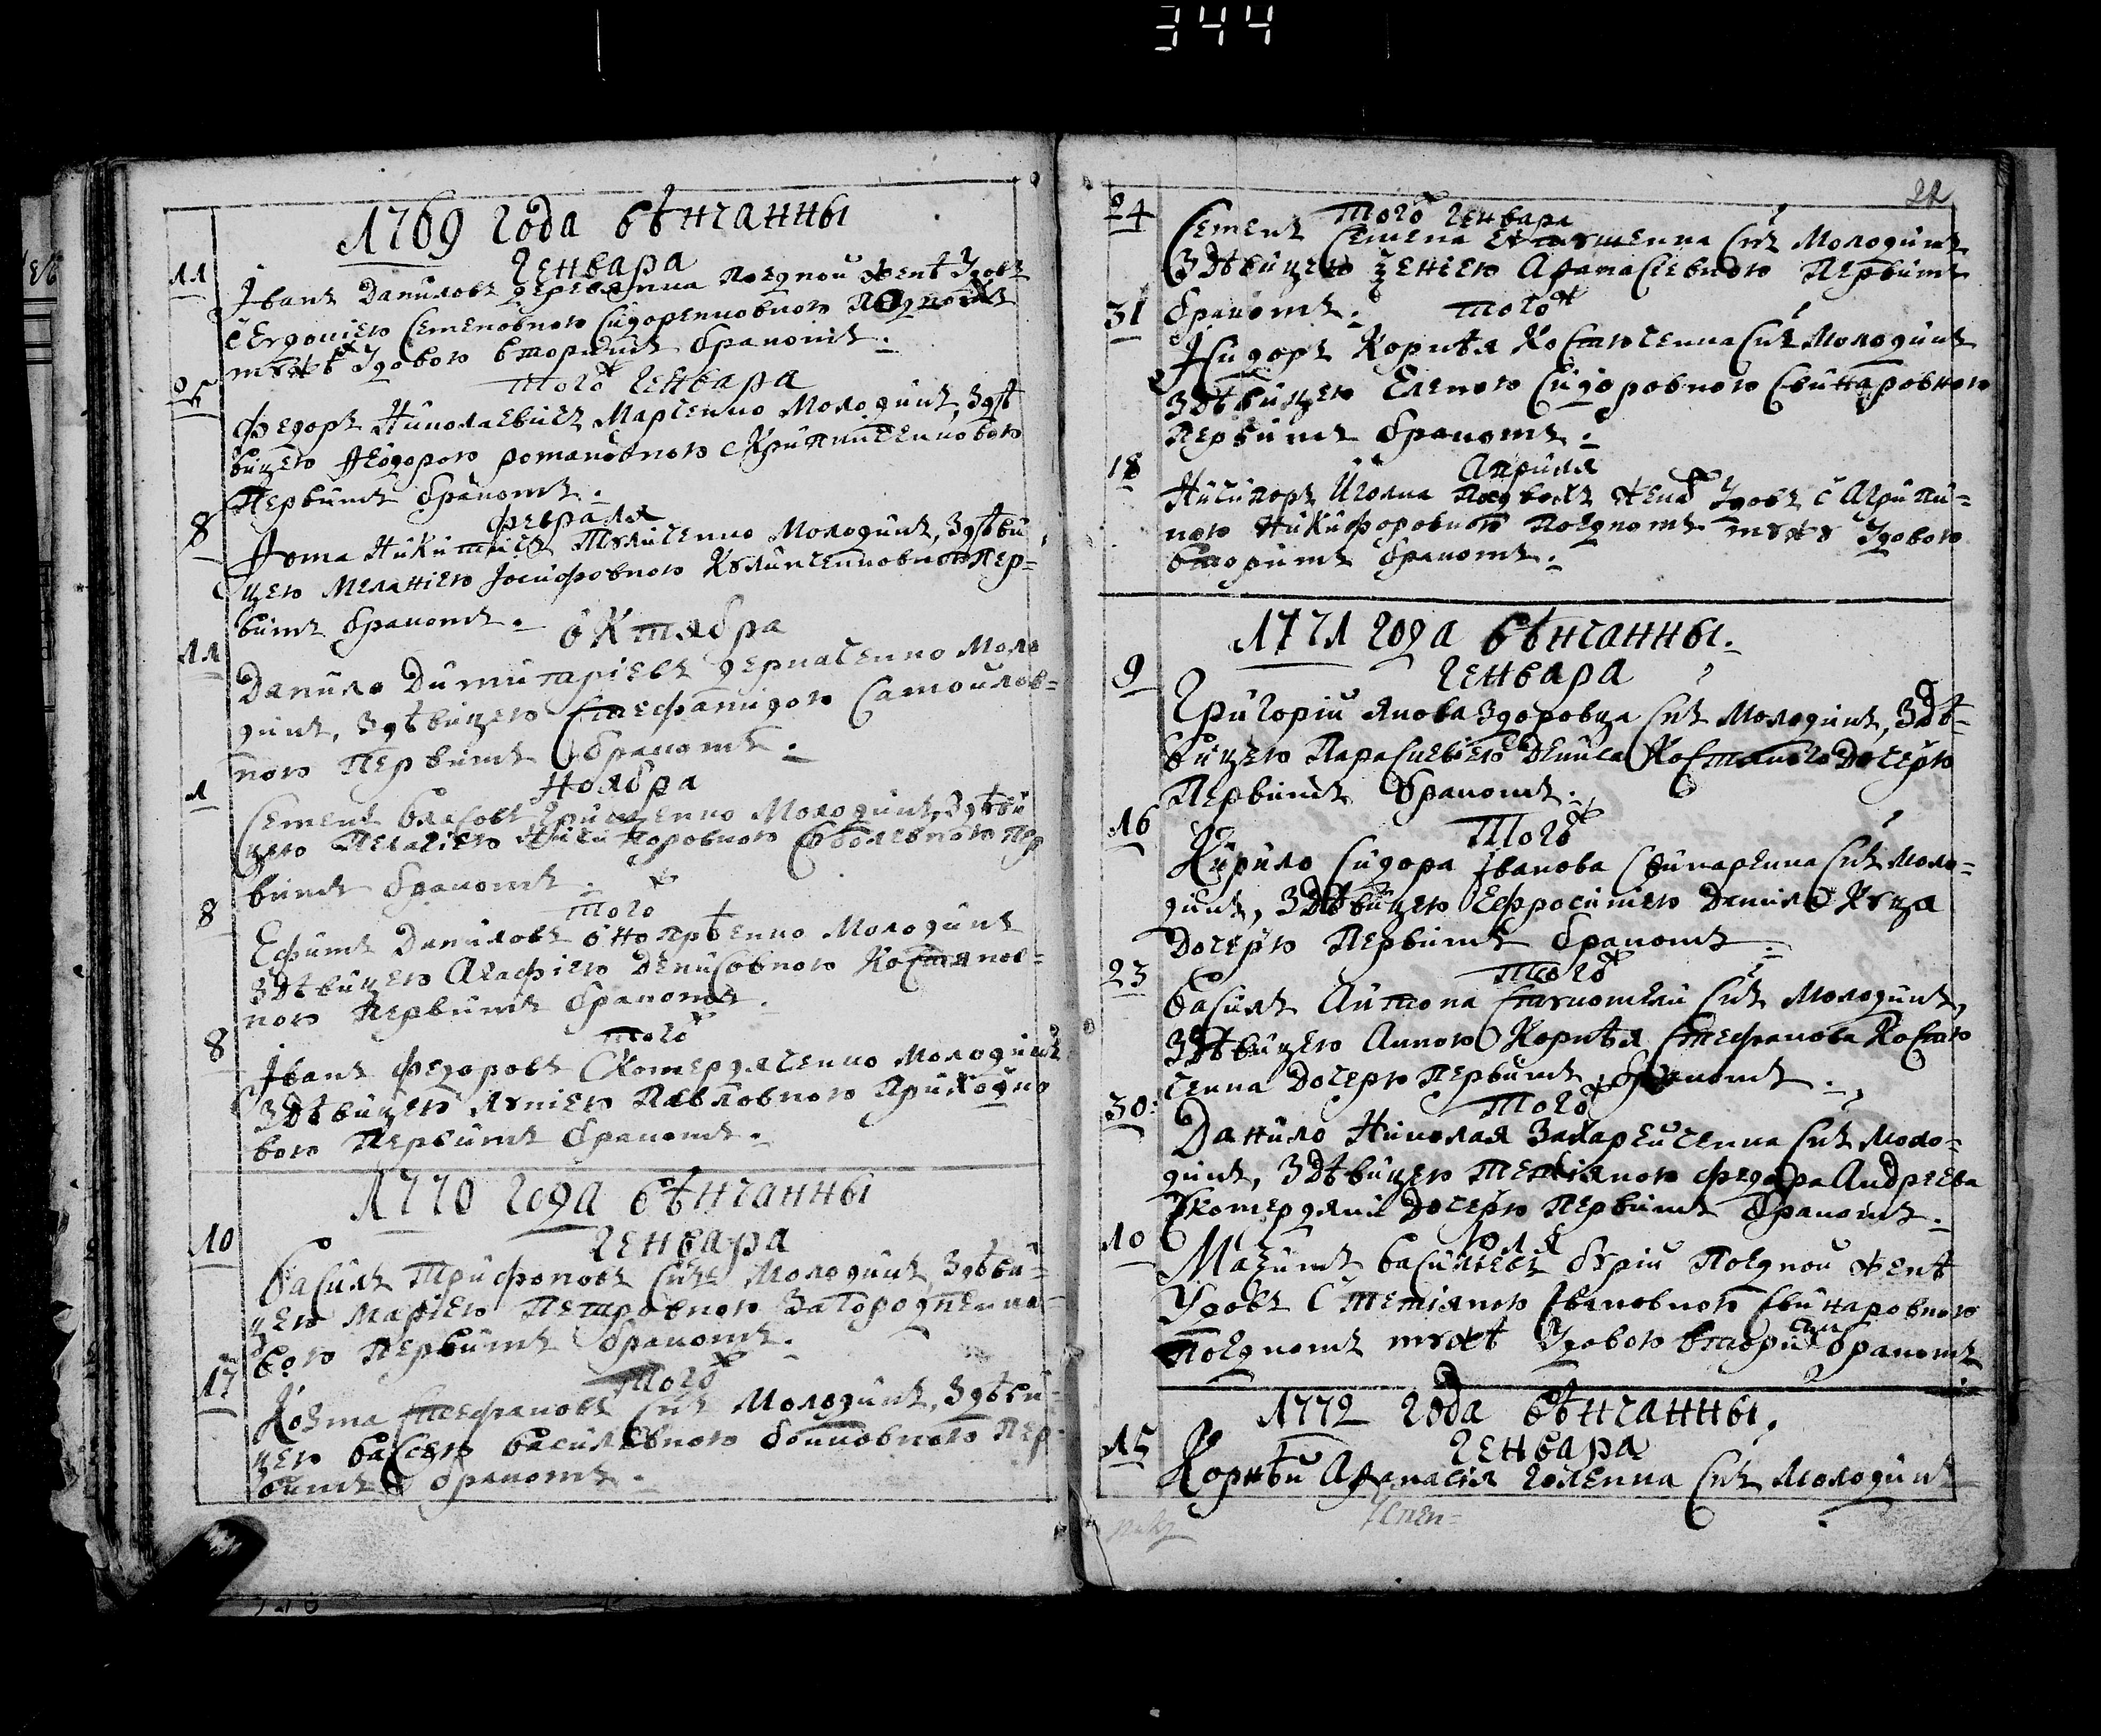 344
1769 года вѣнчанны
Генвара
11 Іванъ Даниловъ деревянна поедной женѣ Удовъ
сЕвдокіею Семеновною Сидоренковною поедномъ
мужѣ Удовою вторимъ бракомъ.
Того ж Генвара
25 Федоръ Николаевичъ Марченко Молодикъ, здѣ
вицею Феодорою романовною Крипниченковою
Первимъ бракомъ.
Февраля
8 Фома Никитичъ Туличенко Молодикъ, здѣви
цею Меланіею Іосифовною Куличенковною Пер=
вимъ бракомъ.
Октября
11 Данило Димитріевъ деркаченко Моло
дикъ, здѣвицею Стефанидою Самойлов=
ною Первимъ бракомъ.
Ноября
1 Семенъ Власовъ Грищенко Молодикъ, здѣви
цею Пелагіею Никифоровною Соболевною Пер
вимъ бракомъ.
Того ж
8 Ефимъ Даниловъ Онопрѣенко Молодикъ
здѣвицею Агафіею Денисовною Костянов=
ною Первимъ бракомъ.
того ж
8 Іванъ Федоровъ Скотердяченко Молодикъ
здѣвицею Якиліею Павловною Приходко
вою Первимъ бракомъ.
1770 года вѣнчанны
Генвара
10 Василъ Трифоновъ синъ Молодикъ здѣви=
цею Маріею Петровною Загородненко=
вою Первимъ бракомъ.
Того ж
17 Козма Стефановъ синъ Молодикъ, здѣви=
цею Вассою Василевною Бойковною Пер=
вимъ бракомъ.
22
Того ж Генвара
24 Семенъ Семена Евтушенка Синъ Молодикъ
Здѣвицею Ксеніею Афатасіевною Первимъ
бракомъ.
того ж
31 Ісидоръ Корнѣя Костюченка Синъ Молодикъ
здѣвицею Еленою Сидоровною Свинаровною
Первимъ бракомъ.
Априля
18 Никифоръ Иголка Поедной женѣ Удовъ с Агрипи=
ною Никифоровною Поедномъ мужу Удовою
вторимъ бракомъ.
1771 года вѣнчанны.
Генвара
9 Григорій Якова Здоровца Синъ Молодикъ, Здѣ=
вицею Параскевіею Дениса Костяного Дочерю
Первимъ бракомъ.
Того ж
16 Кирило Сидора Іванова Свинаренка Синъ Моло=
дикъ, здѣвицею Ефросиніею Данила Куца
Дочерю Первимъ бракомъ.
Того ж
23 Василъ Антона Синъ Молодикъ,
Здѣвицею Анною Корнѣя Стефанова Костю
ченка Дочерю Первимъ бракомъ.
Того ж
30: Данило Николая Захарейченка Синъ Моло=
дикъ, здѣвицею Тетіяною Федора Андреева
Скотердяки Дочерю Первимъ бракомъ.
Іюля
10 Маѯимъ Василіевъ Бурій Поедной женѣ
Удовъ С Тетіяною Івановною Свинаровною
Поедномъ мужѣ Удовою вторимъ бракомъ
1772 года вѣнчанны.
Генвара
15 Корнѣй Афанасія Голенка Синъ Молодикъ